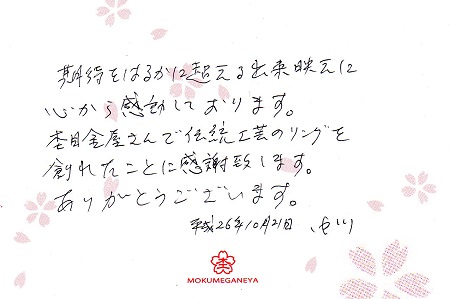 期待をはるかに超える出来映えに
心から感動しております。
杢目金屋さんで伝統工芸のリングを
創れたことに感謝致します。
ありがとうございます。
平成26年10月21日
杢
MOKUMEGANEYA